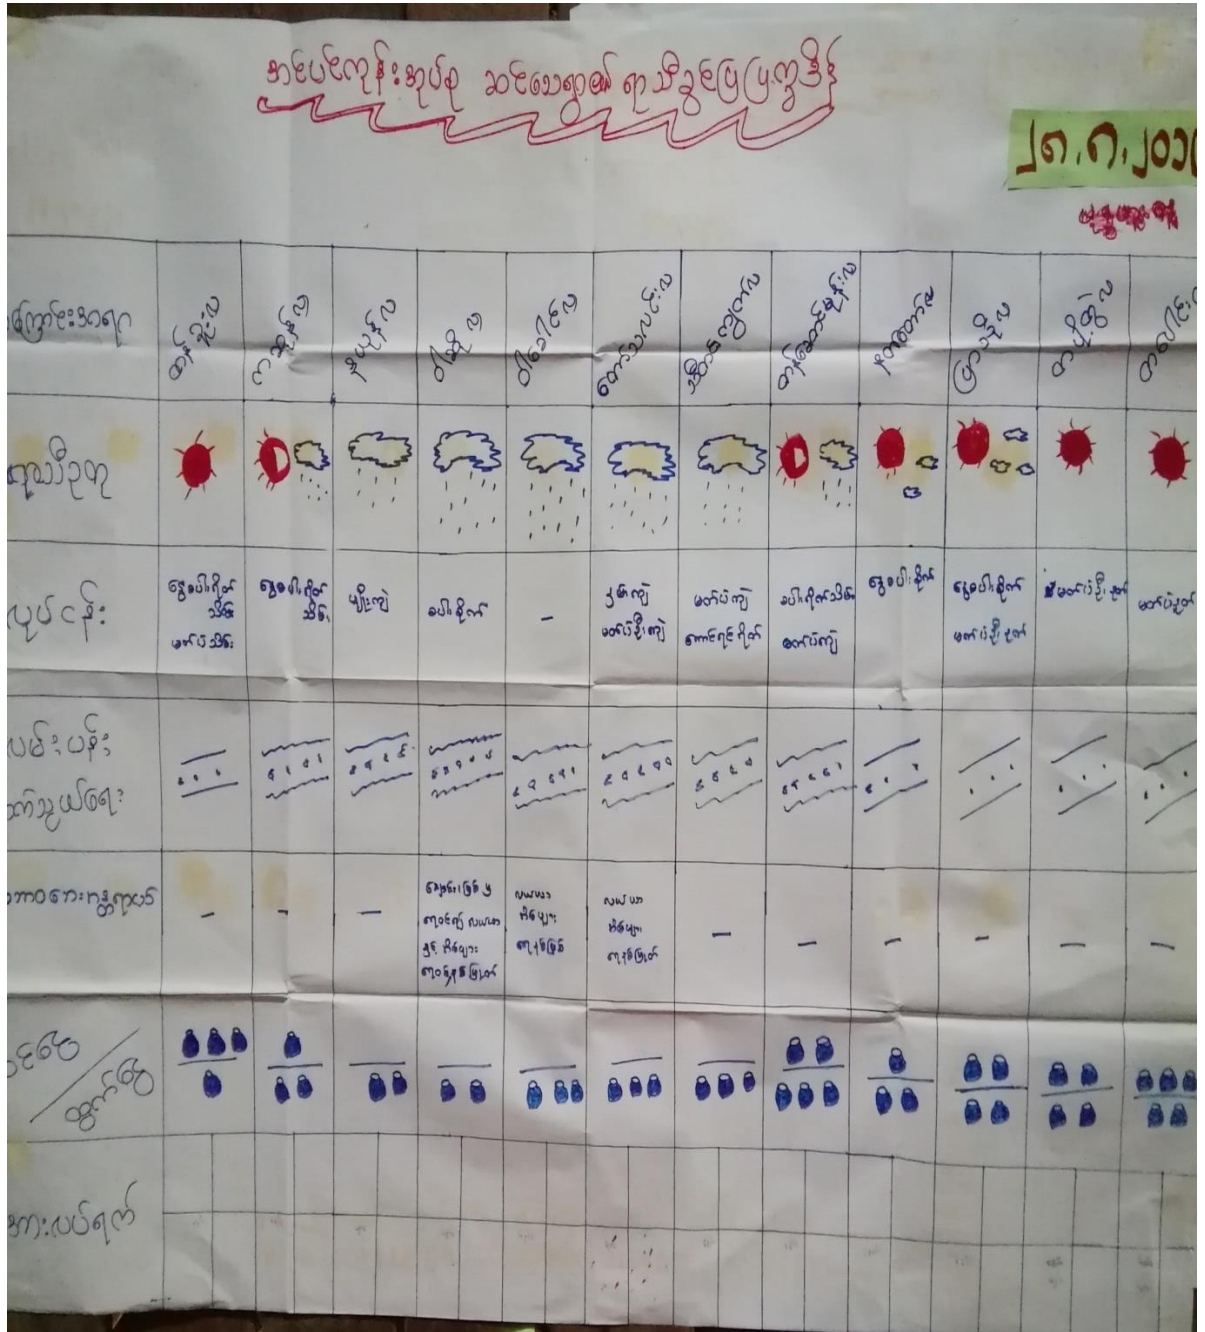 အင်ပင်ကုန်းအုပ်စု ဆင်သေရွာ၏ ရာသီခွင်ပြ ပြက္ခဒိန်
၂၈.၈.၂၀၁
ကြောင်းအရာ
တန်ခူးလ
ကဆုန်လ
နယုန်လ
ဝါဆိုလ
ဝါခေါင်လ
တော်သလင်းလ
သီတင်းကျွတ်လ
တန်ဆောင်မုန်းလ
နတ်တော်လ
ပြာသိုလ
တပို့တွဲလ
တပေါင်းလ
ရာသီဥတု
လုပ်ငန်း
နွေစပါးရိတ်
သိမ်း
မတ်ပဲသိမ်း
နွေစပါးရိတ်
သိမ်း
မျိုးကျဲ
စပါးစိုက်
-
နှမ်းကျဲ
မတ်ပဲဦးကျဲ
မတ်ပဲကျဲ
ကောင်ရင်ရိတ်
စပါးရိတ်သိမ်း
မတ်ပဲကျဲ
နွေစပါးစိုက်
နွေစပါးစိုက်
မတ်ပဲဦးနုတ်
မတ်ပဲဦးနုတ်
မတ်ပဲနုတ်
လမ်းပန်း
ဆက်သွယ်ရေး
ဘာဝဘေးအန္တရာယ်
-
-
-
လယ်ယာ
အိမ်များ
ရေနစ်မြုပ်
လယ်ယာ
အိမ်များ
ရေနစ်မြုပ်
-
-
-
-
-
-
ဝင်ငွေ
ထွက်ငွေ
အားလပ်ရက်